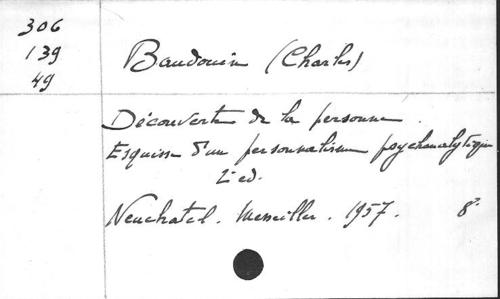 306
139
49
Baudouin (Charles)
Découverte de la personne.
Esquisse d'un personnalisme psychanalytique
2e ed.
Neuchatel. Messeiller. 1957. 8°